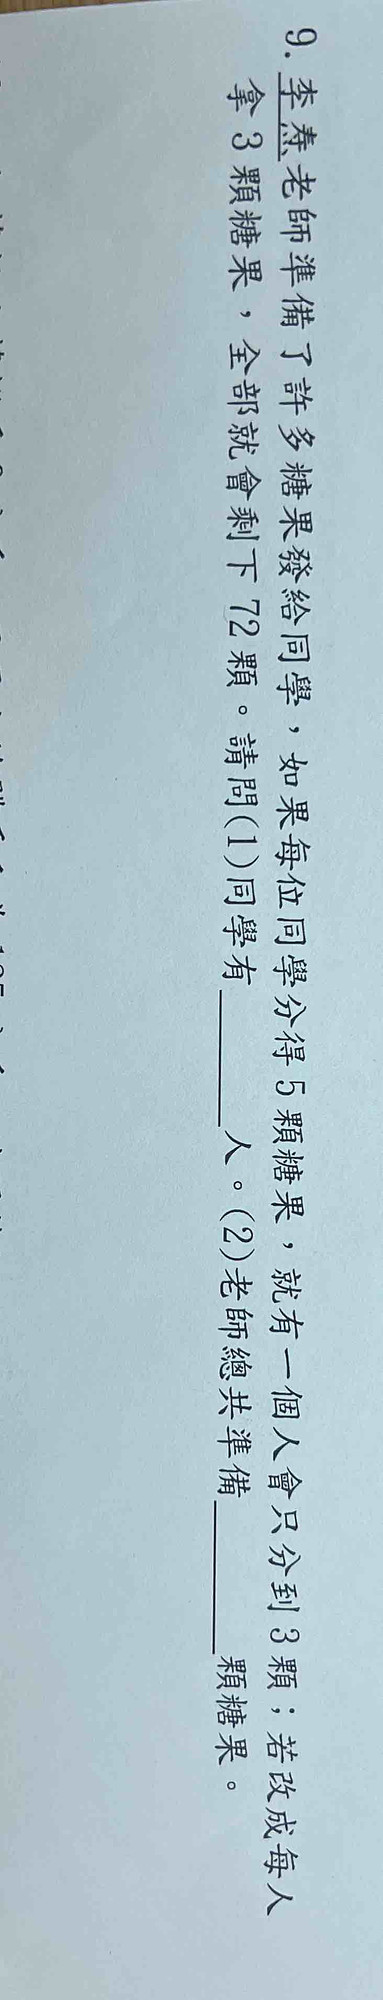 9. 李燾老師準備了許多糖果發給同學，如果每位同學分得5顆糖果，就有一個人會只分到3顆；若改成每人
拿3顆糖果，全部就會剩下72顆。請問(1)同學有______人。(2)老師總共準備______顆糖果。